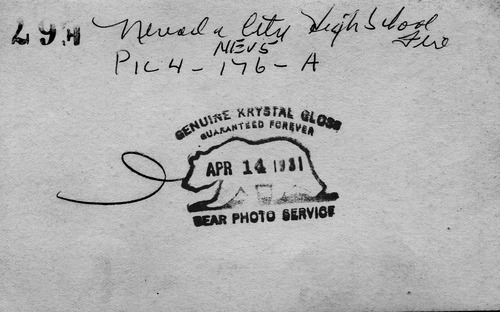 Nevada City High School
Fire
NEVS
PIC 4 - 176 - A
GENUINE KRYSTAL GLOSS
GUARANTEED FOREVER
APR 14 1931
BEAR PHOTO SERVICE